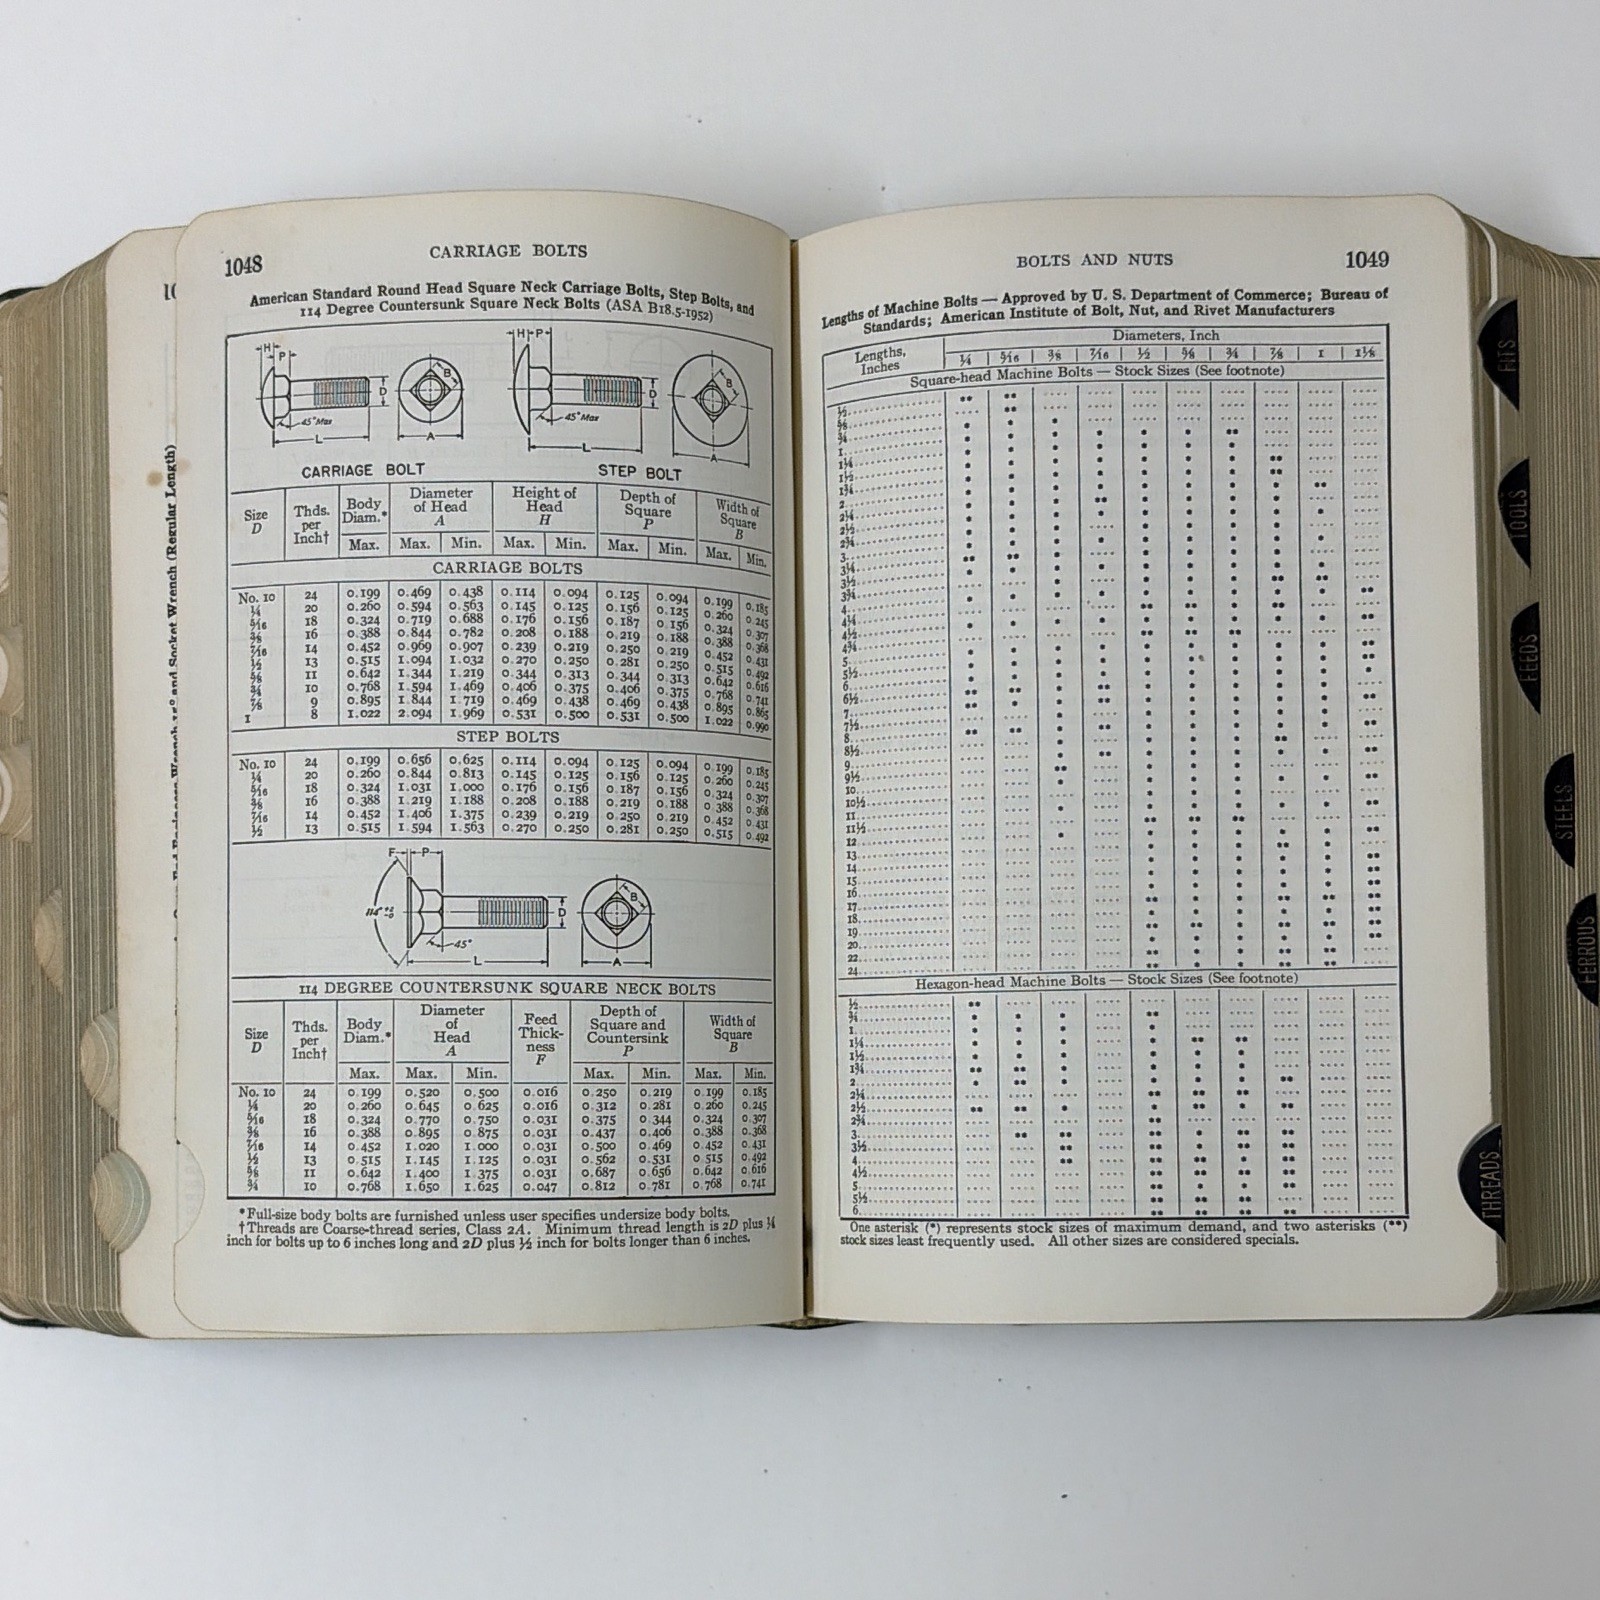 1048
CARRIAGE BOLTS
American Standard Round Head Square Neck Carriage Bolts, Step Bolts, and
114 Degree Countersunk Square Neck Bolts (ASA B18.5-1952)
H P
D
B
45° Max
L
A
H P
D
B
45° Max
L
A
CARRIAGE BOLT
STEP BOLT
Size D | Thds. per Inch† | Body Diam.* | Diameter of Head A | Height of Head H | Depth of Square P | Width of Square B
Max. | Max. | Min. | Max. | Min. | Max. | Min. | Max. | Min.
CARRIAGE BOLTS
No. 10 24 0.199 0.469 0.438 0.114 0.094 0.125 0.094 0.199 0.185
¼ 20 0.260 0.594 0.563 0.145 0.125 0.156 0.125 0.260 0.245
5⁄16 18 0.324 0.719 0.688 0.176 0.156 0.187 0.156 0.324 0.307
⅜ 16 0.388 0.844 0.782 0.208 0.188 0.219 0.188 0.388 0.368
7⁄16 14 0.452 0.969 0.907 0.239 0.219 0.250 0.219 0.452 0.431
½ 13 0.515 1.094 1.032 0.270 0.250 0.281 0.250 0.515 0.492
⅝ 11 0.642 1.344 1.219 0.344 0.313 0.344 0.313 0.642 0.616
¾ 10 0.768 1.594 1.469 0.406 0.375 0.406 0.375 0.768 0.741
⅞ 9 0.895 1.844 1.719 0.469 0.438 0.469 0.438 0.895 0.865
1 8 1.022 2.094 1.969 0.531 0.500 0.531 0.500 1.022 0.990
STEP BOLTS
No. 10 24 0.199 0.656 0.625 0.114 0.094 0.125 0.094 0.199 0.185
¼ 20 0.260 0.844 0.813 0.145 0.125 0.156 0.125 0.260 0.245
5⁄16 18 0.324 1.031 1.000 0.176 0.156 0.187 0.156 0.324 0.307
⅜ 16 0.388 1.219 1.188 0.208 0.188 0.219 0.188 0.388 0.368
7⁄16 14 0.452 1.406 1.375 0.239 0.219 0.250 0.219 0.452 0.431
½ 13 0.515 1.594 1.563 0.270 0.250 0.281 0.250 0.515 0.492
F P
D
B
114° +2 -0
45°
L
A
114 DEGREE COUNTERSUNK SQUARE NECK BOLTS
Size D | Thds. per Inch† | Body Diam.* | Diameter of Head A | Feed Thick-ness F | Depth of Square and Countersink P | Width of Square B
Max. | Max. | Min. | Max. | Min. | Max. | Min.
No. 10 24 0.199 0.520 0.500 0.016 0.250 0.219 0.199 0.185
¼ 20 0.260 0.645 0.625 0.016 0.312 0.281 0.260 0.245
5⁄16 18 0.324 0.770 0.750 0.031 0.375 0.344 0.324 0.307
⅜ 16 0.388 0.895 0.875 0.031 0.437 0.406 0.388 0.368
7⁄16 14 0.452 1.020 1.000 0.031 0.500 0.469 0.452 0.431
½ 13 0.515 1.145 1.125 0.031 0.562 0.531 0.515 0.492
⅝ 11 0.642 1.400 1.375 0.031 0.687 0.656 0.642 0.616
¾ 10 0.768 1.650 1.625 0.047 0.812 0.781 0.768 0.741
*Full-size body bolts are furnished unless user specifies undersize body bolts.
†Threads are Coarse-thread series, Class 2A. Minimum thread length is 2D plus ¼
inch for bolts up to 6 inches long and 2D plus ½ inch for bolts longer than 6 inches.
Socket Wrench (Regular Length)
BOLTS AND NUTS
1049
Lengths of Machine Bolts — Approved by U. S. Department of Commerce; Bureau of
Standards; American Institute of Bolt, Nut, and Rivet Manufacturers
Lengths, Inches
Diameters, Inch
¼ | 5⁄16 | ⅜ | 7⁄16 | ½ | ⅝ | ¾ | ⅞ | 1 | 1⅛
Square-head Machine Bolts — Stock Sizes (See footnote)
½
⅝
¾
1
1¼
1½
1¾
2
2¼
2½
2¾
3
3¼
3½
3¾
4
4¼
4½
4¾
5
5½
6
6½
7
7½
8
8½
9
9½
10
10½
11
11½
12
13
14
15
16
17
18
19
20
22
24
Hexagon-head Machine Bolts — Stock Sizes (See footnote)
½
¾
1
1¼
1½
1¾
2
2¼
2½
2¾
3
3½
4
4½
5
5½
6
One asterisk (*) represents stock sizes of maximum demand, and two asterisks (**)
stock sizes least frequently used. All other sizes are considered specials.
FITS
TOOLS
FEEDS
STEELS
FERROUS
THREADS